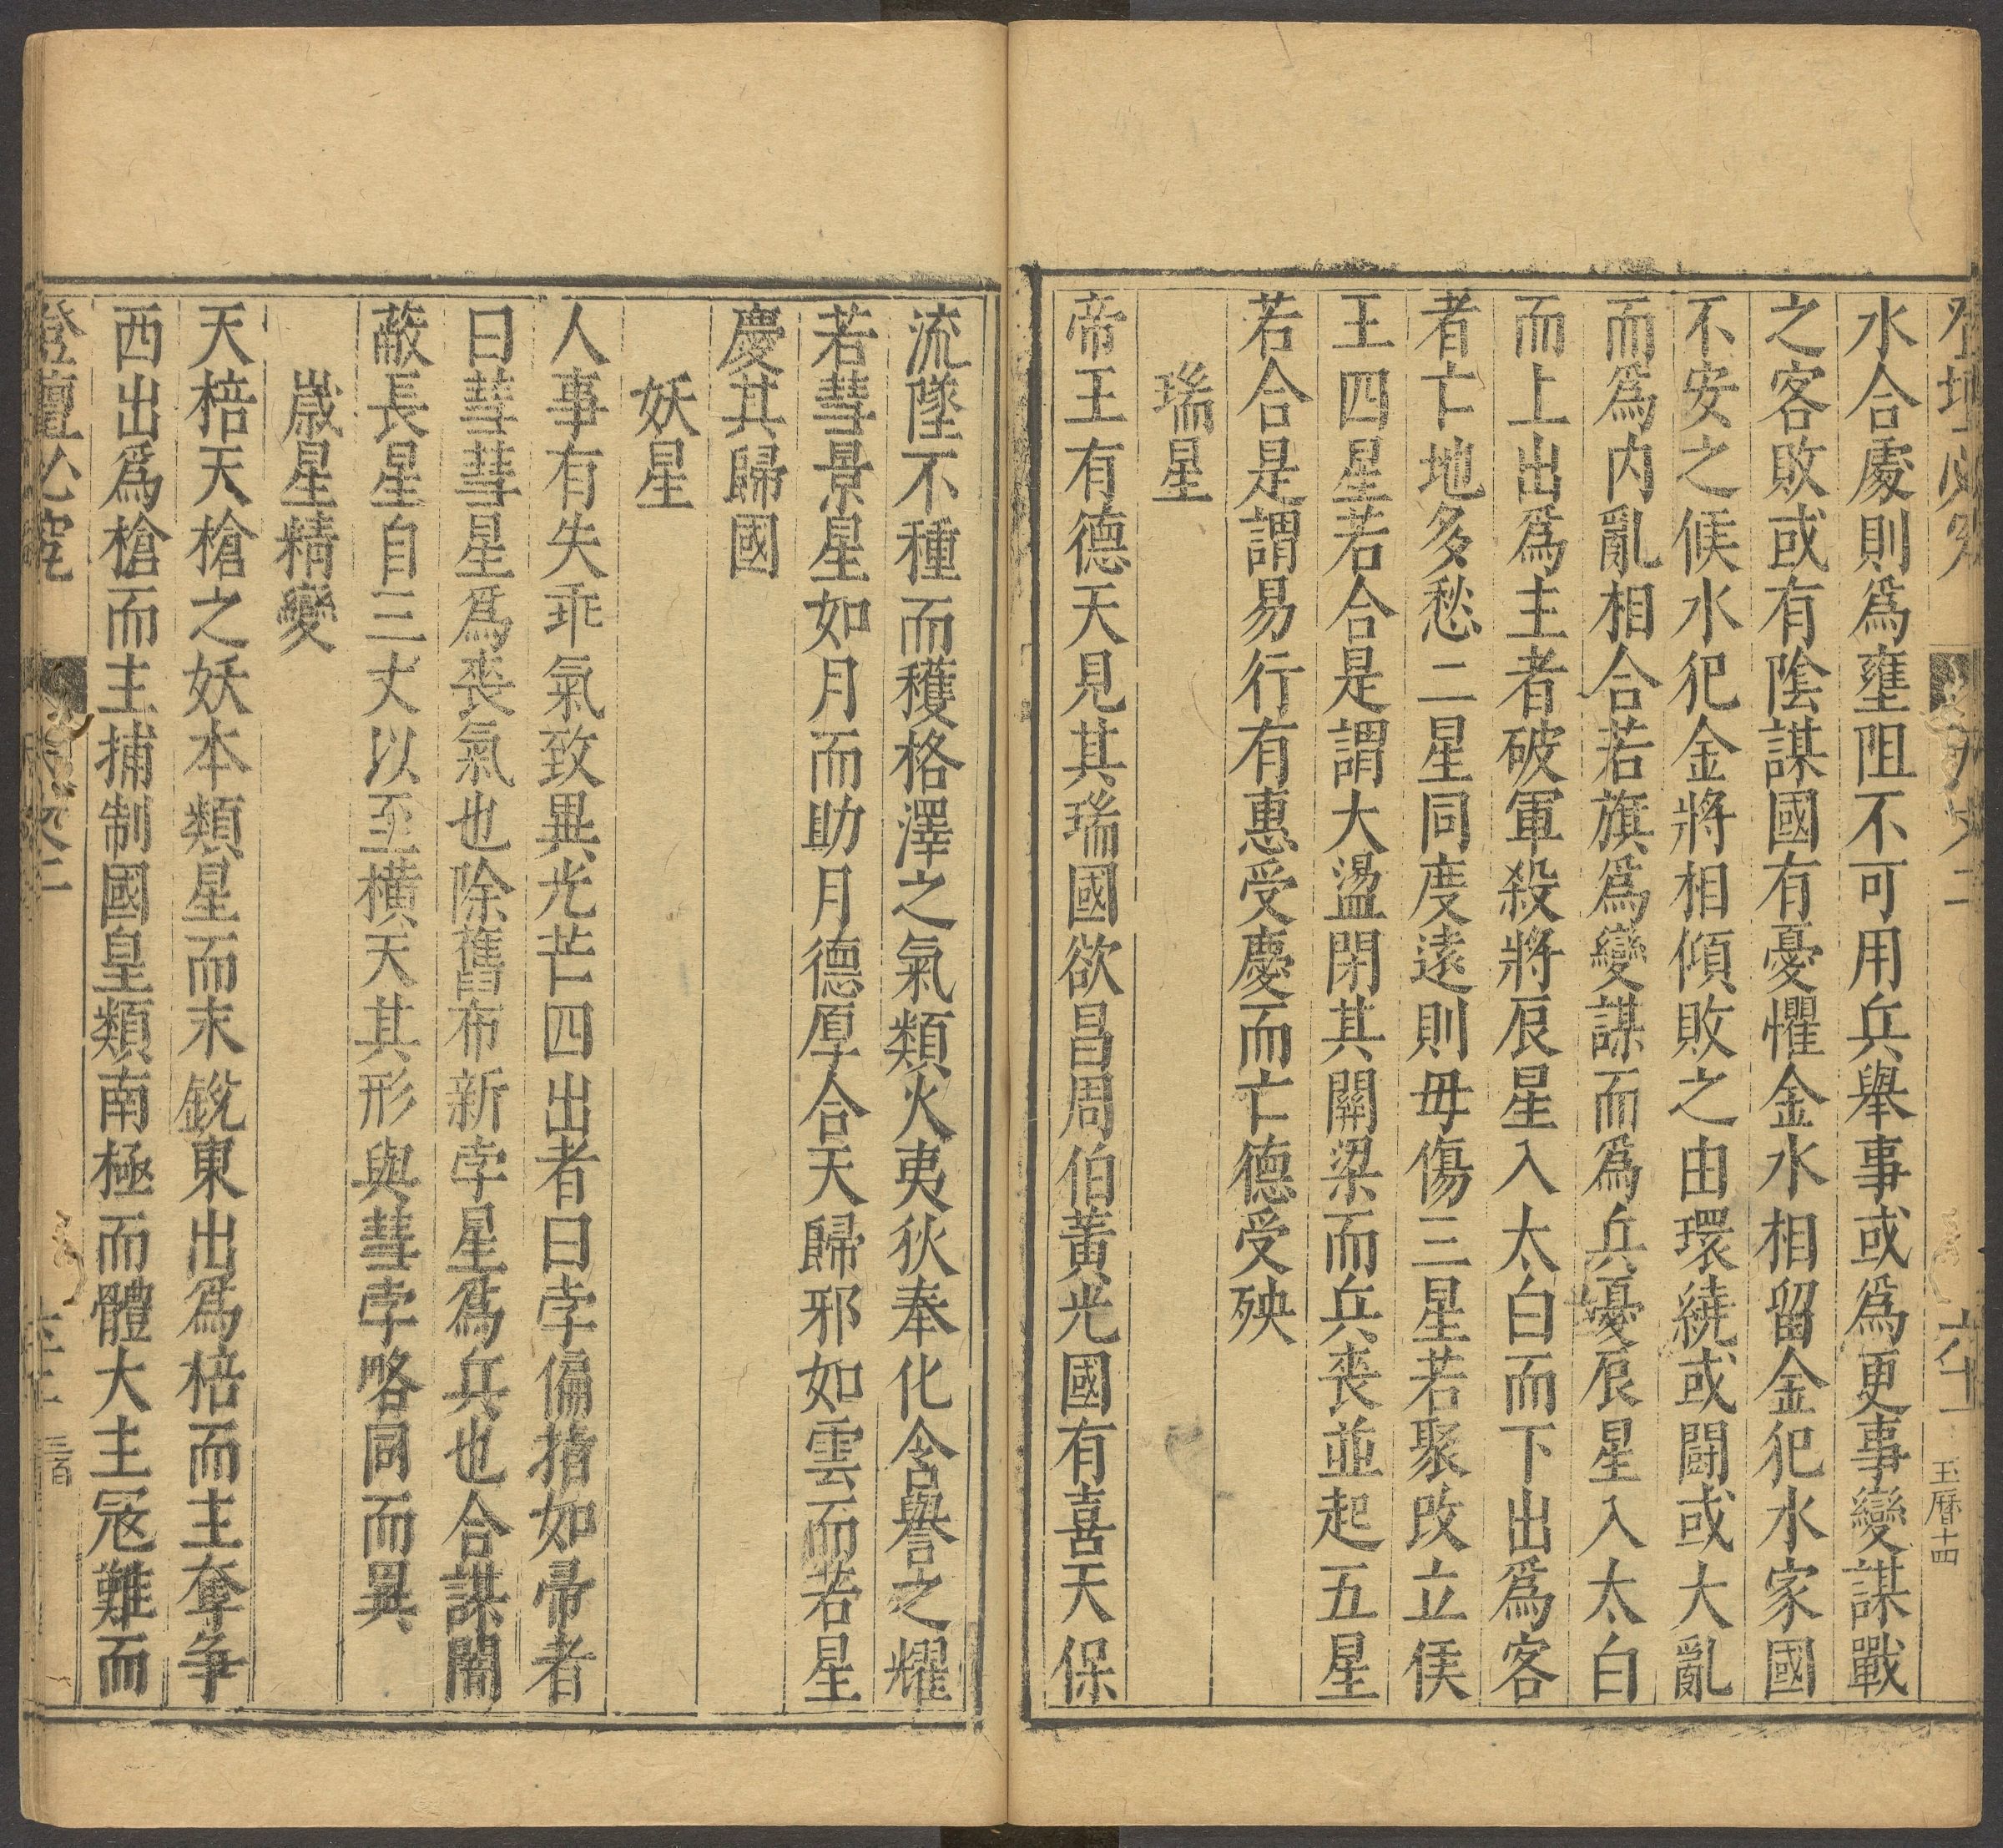 登壇必究
卷之二
六十一
玉曆十四
水合處則爲壅阻不可用兵舉事或爲更事變謀戰
之客敗或有陰謀國有憂懼金水相留金犯水家國
不安之候水犯金將相傾敗之由環繞或鬪或大亂
而爲內亂相合若旗爲變謀而爲兵憂辰星入太白
而上出爲主者破軍殺將辰星入太白而下出爲客
者亡地多愁二星同度遠則毋傷三星若聚改立侯
王四星若合是謂大盪閉其關梁而兵丧並起五星
若合是謂易行有惠受慶而亡德受殃
瑞星
帝王有德天見其瑞國欲昌周伯黃光國有喜天保
流墜不種而穫格澤之氣類火夷狄奉化含譽之耀
若彗景星如月而助月德厚合天歸邪如雲而若星
慶其歸國
妖星
人事有失乖氣致異光芒四出者曰孛偏指如帚者
曰彗彗星爲丧氣也除舊布新孛星爲兵也合謀闇
蔽長星自三丈以至橫天其形與彗孛略同而異
歲星精變
天棓天槍之妖本類星而末銳東出爲棓而主奪争
西出爲槍而主捕制國皇類南極而體大主冦難而
登壇必究
之二